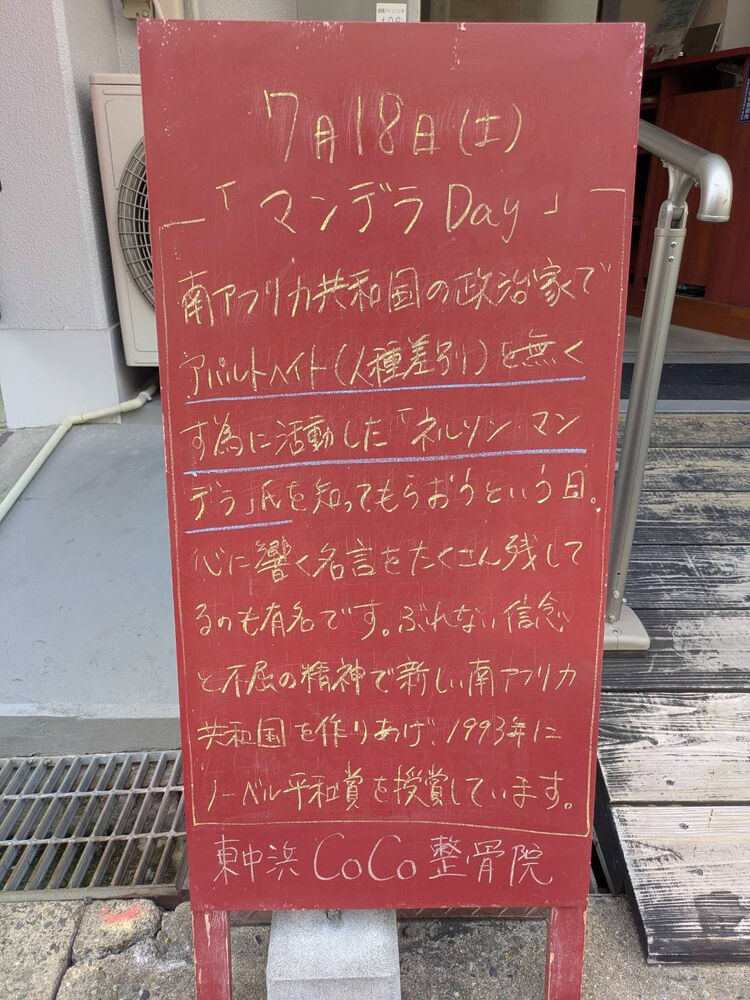 7月18日(土)
「マンデラDay」
南アフリカ共和国の政治家で
アパルトヘイト(人種差別)を無く
す為に活動した「ネルソン・マン
デラ」氏を知ってもらおうという日。
心に響く名言をたくさん残して
るのも有名です。ぶれない信念
と不屈の精神で新しい南アフリカ
共和国を作りあげ、1993年に
ノーベル平和賞を授賞しています。
東中浜CoCo整骨院